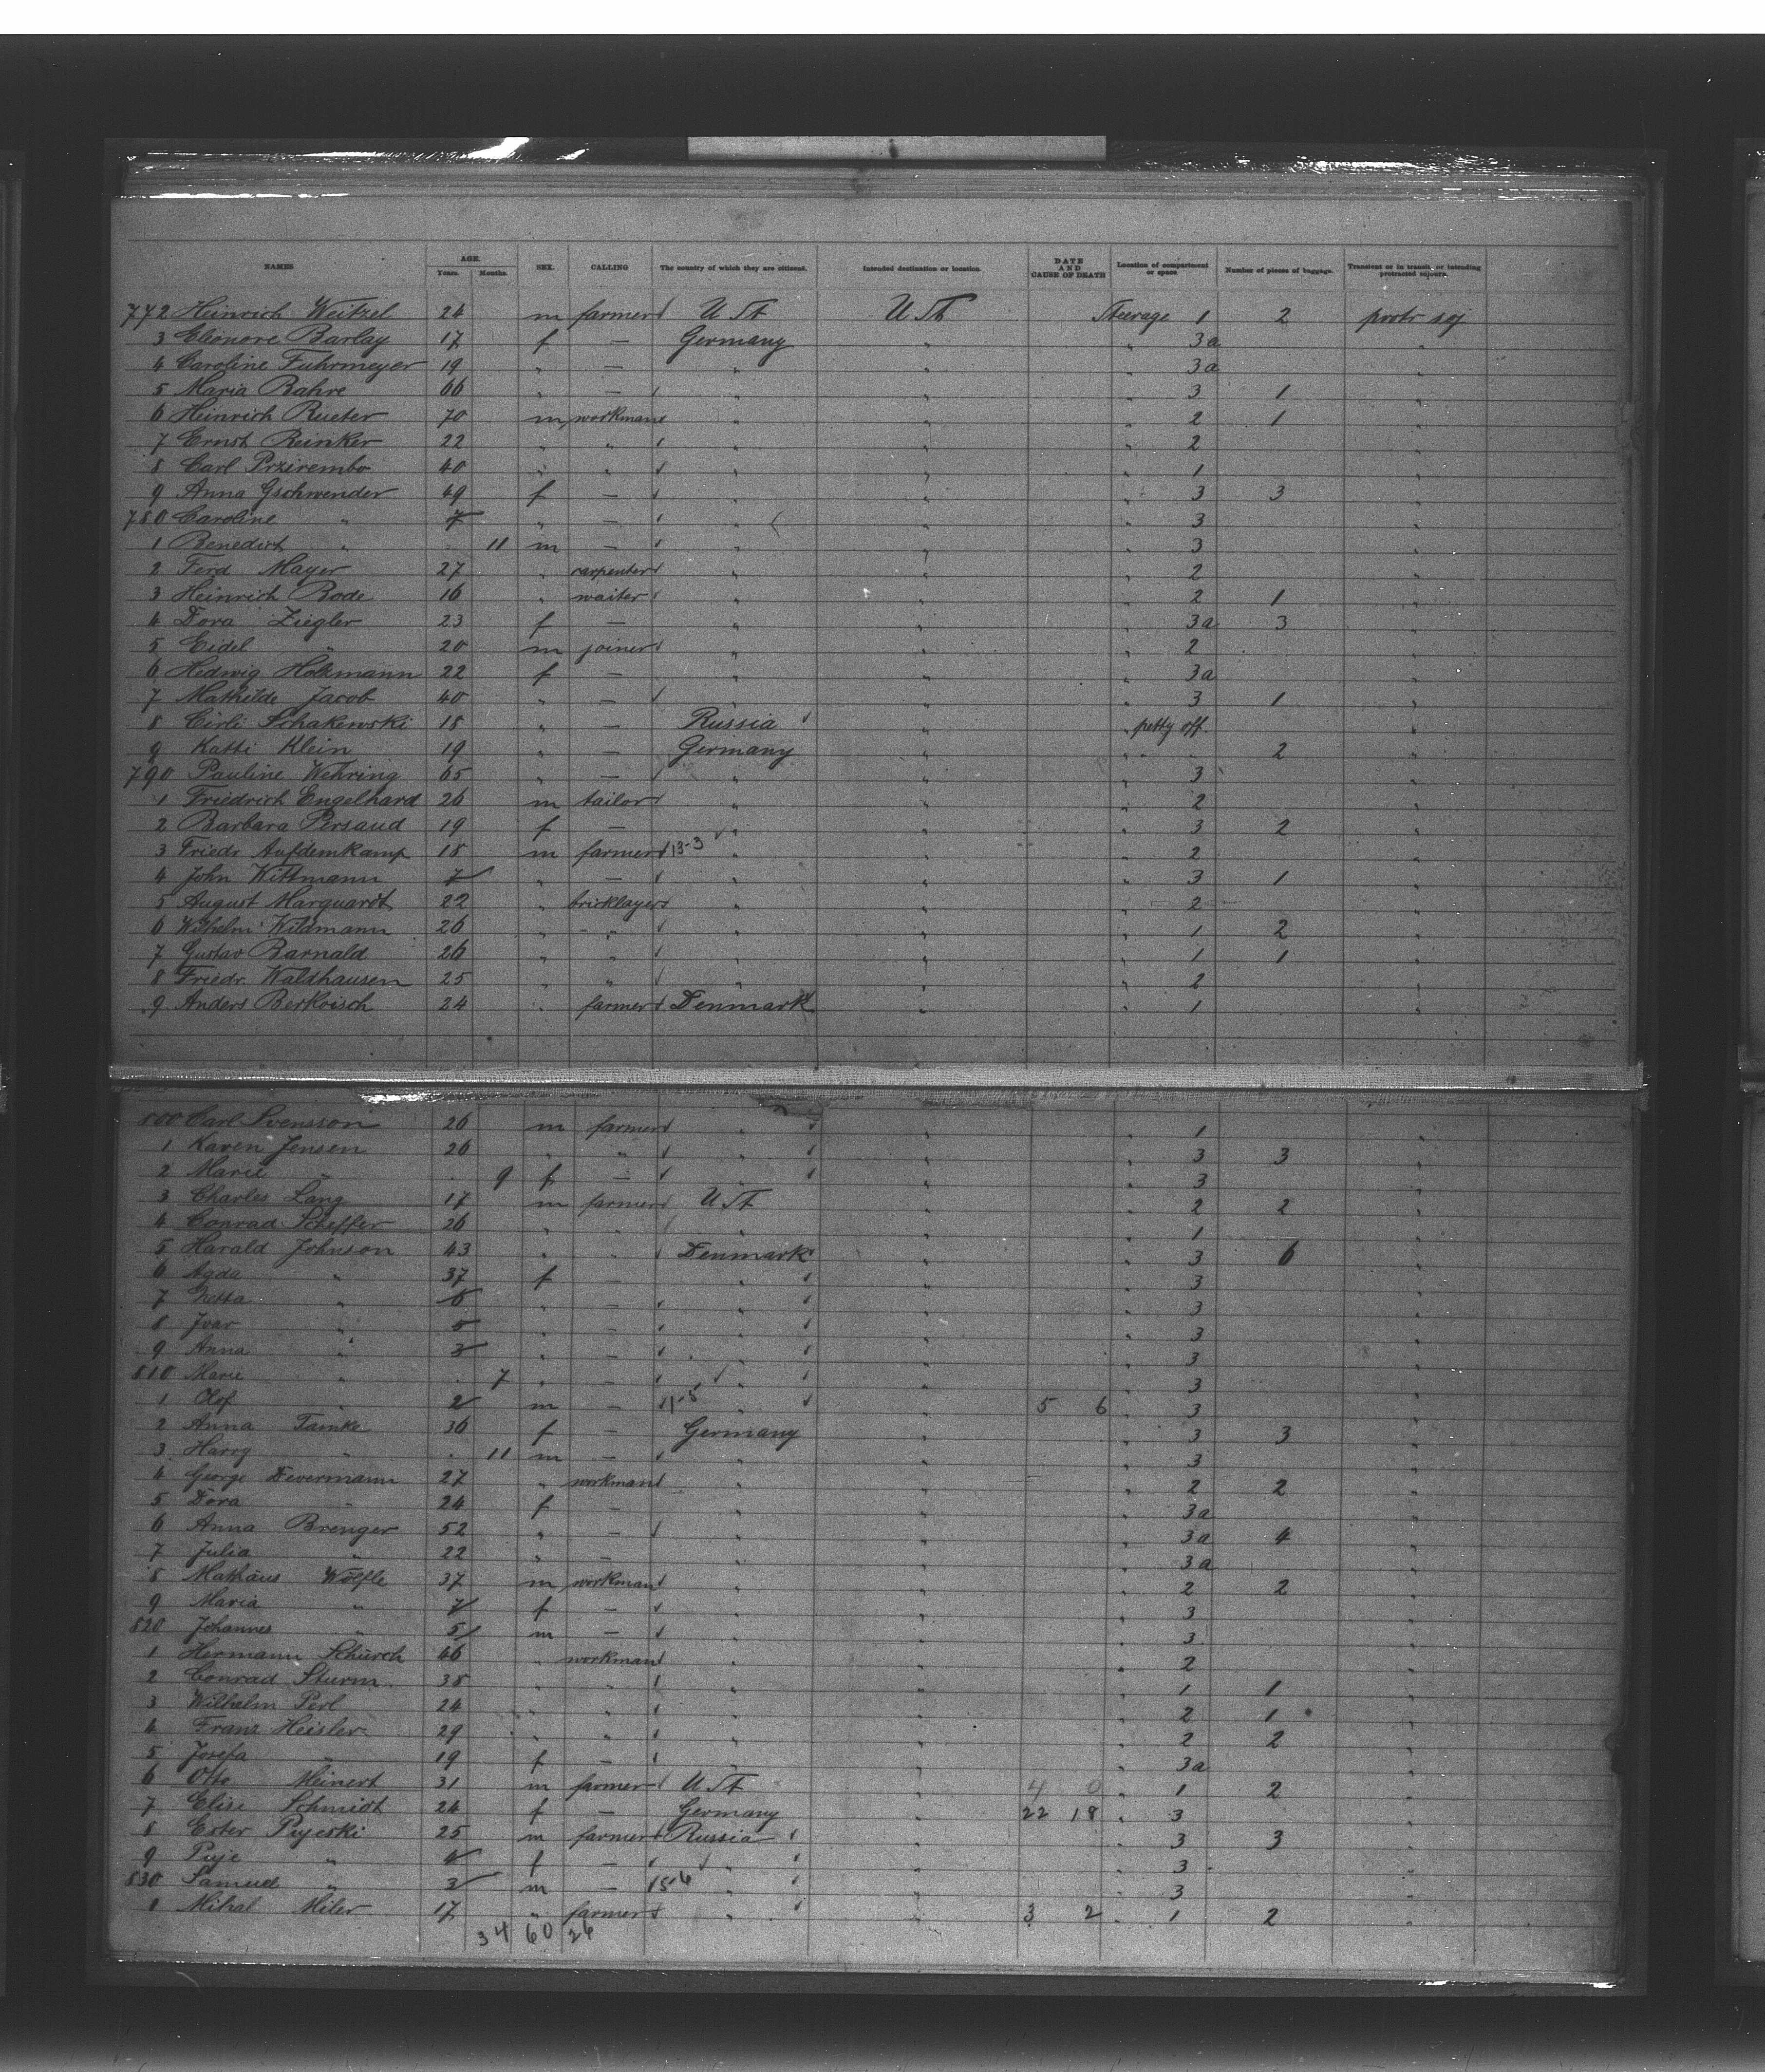 NAMES AGE. Years. Months. SEX. CALLING The country of which they are citizens. Intended destination or location. DATE AND CAUSE OF DEATH Location of compartment or space Number of pieces of baggage. Transient or in transit, or intending protracted sojourn.
772 Heinrich Weitzel 24 m farmer U St U St Steerage 1 2 protr soj
3 Eleonore Barlay 17 f — Germany " " 3a "
4 Caroline Fuhrmeyer 19 " — " " " 3a "
5 Maria Bahre 66 " — " " " 3 1 "
6 Heinrich Rueter 70 m workman " " " 2 1 "
7 Ernst Reinker 22 " " " " " 2 "
8 Carl Przirembo 40 " " " " " 1 "
9 Anna Gschwender 49 f — " " " 3 3 "
780 Caroline " 7 " — " " " 3 "
1 Benedict " 11 m — " " " 3 "
2 Ferd Mayer 27 " carpenter " " " 2 "
3 Heinrich Rode 16 " waiter " " " 2 1 "
4 Dora Ziegler 23 f — " " " 3a 3 "
5 Eidel " 20 m joiner " " " 2 "
6 Hedwig Holkmann 22 f — " " " 3a "
7 Mathilde Jacob 40 " — " " " 3 1 "
8 Cirli Schakewski 18 " — Russia " " petty off. "
9 Katti Klein 19 " — Germany " " " 2 "
790 Pauline Wehring 65 " — " " " 3 "
1 Friedrich Engelhard 26 m tailor " " " 2 "
2 Barbara Persaud 19 f — " " " 3 2 "
3 Friedr Aufdemkamp 18 m farmer 13-3 " " " 2 "
4 John Wittmann 7 " — " " " 3 1 "
5 August Marquardt 22 " bricklayer " " " 2 "
6 Wilhelm Wildmann 26 " " " " " 1 2 "
7 Gustav Barnald 26 " " " " " 1 1 "
8 Friedr. Waldhausen 25 " " " " " 2 "
9 Anders Berkoisch 24 " farmer Denmark " " 1 "
800 Carl Svensson 26 m farmer " " " 1 "
1 Karen Jensen 26 " " " " " 3 3 "
2 Marie " 9 f — " " " 3 "
3 Charles Lang 17 m farmer U St " " 2 2 "
4 Conrad Scheffer 26 " " " " " 1 "
5 Harald Johnson 43 " " Denmark " " 3 6 "
6 Agda " 37 f — " " " 3 "
7 " 6 " — " " " 3 "
8 Ivar " 5 " — " " " 3 "
9 Anna " 3 " — " " " 3 "
810 Marie " 7 " — " " " 3 "
1 Olof " 2 m — 11-5 " " 5 6 " 3 "
2 Anna Tamke 30 f — Germany " " 3 3 "
3 Harry " 11 m — " " " 3 "
4 George Devermann 27 " workman " " " 2 2 "
5 Dora " 24 f — " " " 3a "
6 Anna Brenger 52 " — " " " 3a 4 "
7 Julia " 22 " — " " " 3a "
8 Mathäus Wölfle 37 m workman " " " 2 2 "
9 Maria " 7 f — " " " 3 "
820 Johannes " 5 m — " " " 3 "
1 Hermann Schürch 46 " workman " " " 2 "
2 Conrad Sturm 38 " " " " " 1 1 "
3 Wilhelm Perl 24 " " " " " 2 1 "
4 Franz Heisler 29 " " " " " 2 2 "
5 Josefa " 19 f — " " " 3a "
6 Otto Meinert 31 m farmer U St " 4 0 " 1 2 "
7 Elise Schmidt 24 f — Germany " 22 18 " 3 "
8 Ester Pujeski 25 m farmer Russia " " 3 3 "
9 Puje " 4 f — " " " 3 "
830 Samuel " 3 m — 15-6 " " " 3 "
1 Mihal Miler 17 " farmer " " 3 2 " 1 2 "
34 60 26